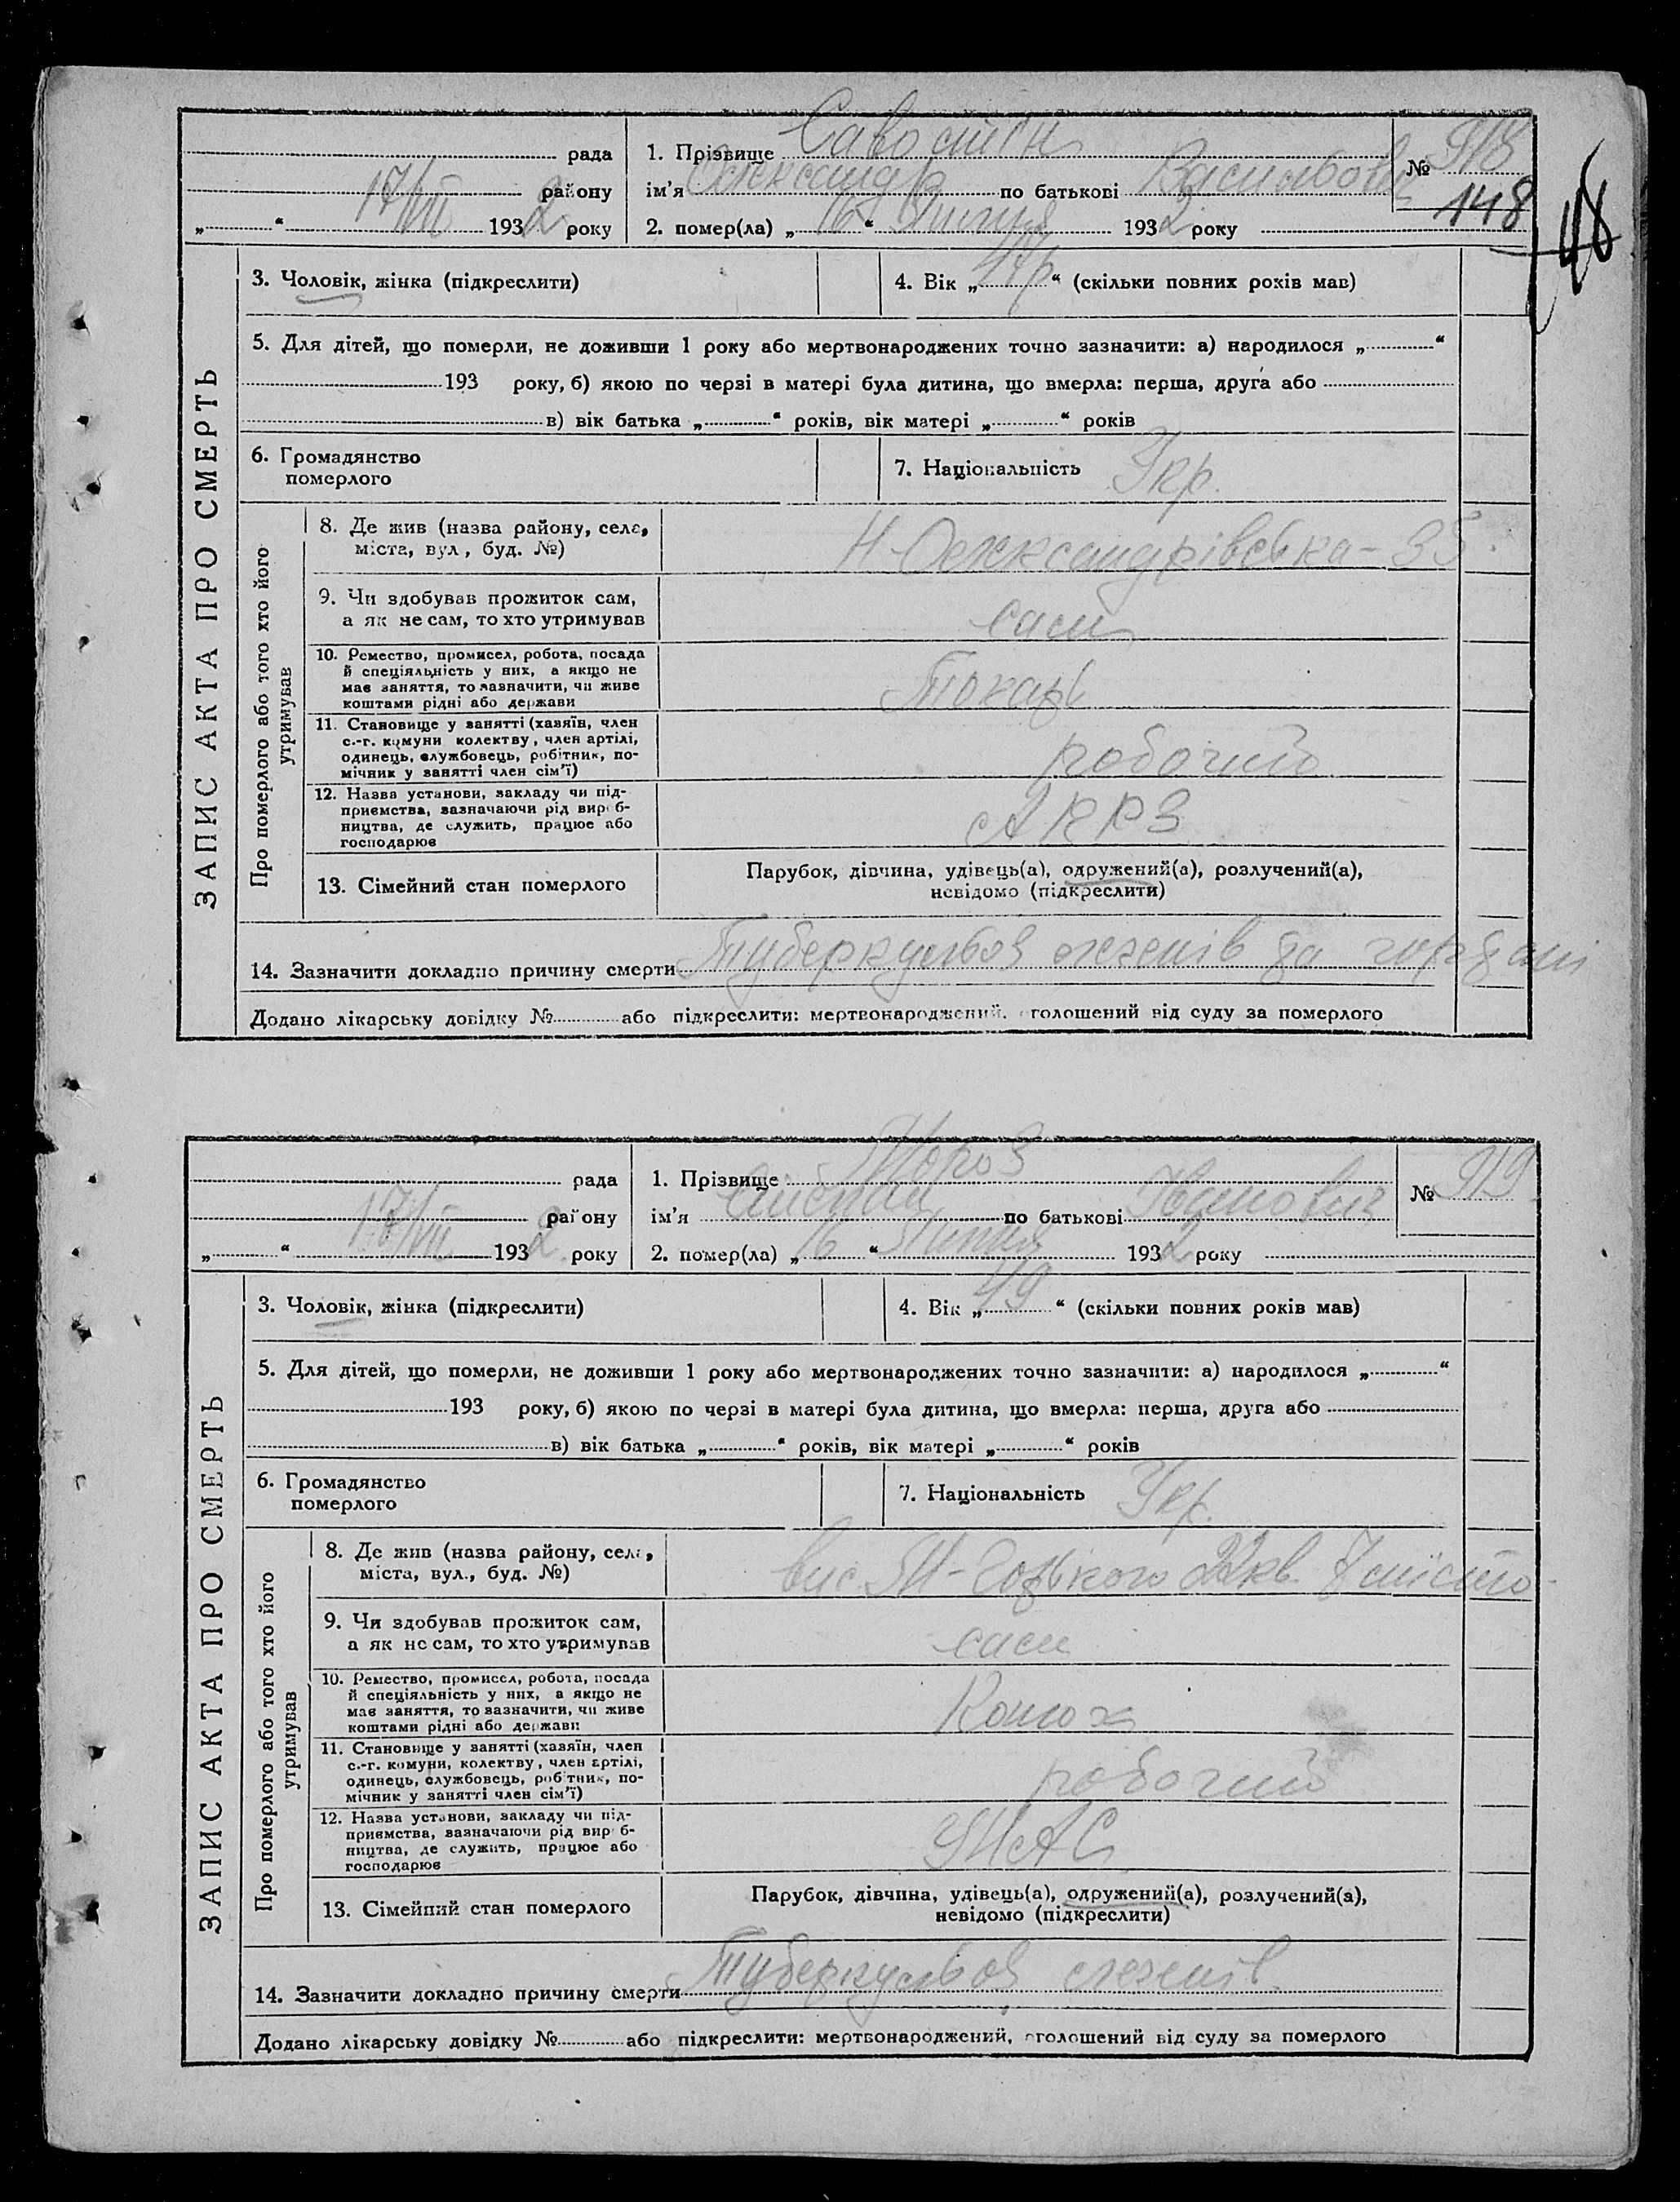 рада
району
17/VII 1932 року
1. Прізвище Савостін
ім'я Олександр по батькові Васильович
2. помер(ла) „16“ Липня 1932 року
№ 918
148
148
ЗАПИС АКТА ПРО СМЕРТЬ
3. Чоловік, жінка (підкреслити)
4. Вік „47р“ (скільки повних років мав)
5. Для дітей, що померли, не доживши 1 року або мертвонароджених точно зазначити: а) народилося „ “
193 року, б) якою по черзі в матері була дитина, що вмерла: перша, друга або
в) вік батька „ “ років, вік матері „ “ років
6. Громадянство
померлого
7. Національність Укр.
Про померлого або того хто його
утримував
8. Де жив (назва району, села,
міста, вул., буд. №)
Н-Олександрівська-35.
9. Чи здобував прожиток сам,
а як не сам, то хто утримував
сам
10. Ремество, промисел, робота, посада
й спеціяльність у них, а якщо не
має заняття, то зазначити, чи живе
коштами рідні або держави
Токарь
11. Становище у занятті (хазяїн, член
с.-г. комуни колективу, член артілі,
одинець, службовець, робітник, по-
мічник у занятті член сім'ї)
робочий
12. Назва установи, закладу чи під-
приємства, зазначаючи рід вироб-
ництва, де служить, працює або
господарює
13. Сімейний стан померлого
Парубок, дівчина, удівець(а), одружений(а), розлучений(а),
невідомо (підкреслити)
14. Зазначити докладно причину смерти Туберкульоз легенів да гортані
Додано лікарську довідку № або підкреслити: мертвонароджений, оголошений від суду за померлого
рада
району
17/VII 1932 року
1. Прізвище Мороз
ім'я Степан по батькові
2. помер(ла) „16“ Липня 1932 року
№ 919
ЗАПИС АКТА ПРО СМЕРТЬ
3. Чоловік, жінка (підкреслити)
4. Вік „49“ (скільки повних років мав)
5. Для дітей, що померли, не доживши 1 року або мертвонароджених точно зазначити: а) народилося „ “
193 року, б) якою по черзі в матері була дитина, що вмерла: перша, друга або
в) вік батька „ “ років, вік матері „ “ років
6. Громадянство
померлого
7. Національність Укр.
Про померлого або того хто його
утримував
8. Де жив (назва району, села,
міста, вул., буд. №)
вис. М-Горького 22кв. 7
9. Чи здобував прожиток сам,
а як не сам, то хто утримував
сам
10. Ремество, промисел, робота, посада
й спеціяльність у них, а якщо не
має заняття, то зазначити, чи живе
коштами рідні або держави
Конюх
11. Становище у занятті (хазяїн, член
с.-г. комуни, колективу, член артілі,
одинець, службовець, робітник, по-
мічник у занятті член сім'ї)
робочий
12. Назва установи, закладу чи під-
приємства, зазначаючи рід вироб-
ництва, де служить, працює або
господарює
13. Сімейний стан померлого
Парубок, дівчина, удівець(а), одружений(а), розлучений(а),
невідомо (підкреслити)
14. Зазначити докладно причину смерти Туберкульоз легенів
Додано лікарську довідку № або підкреслити: мертвонароджений, оголошений від суду за померлого